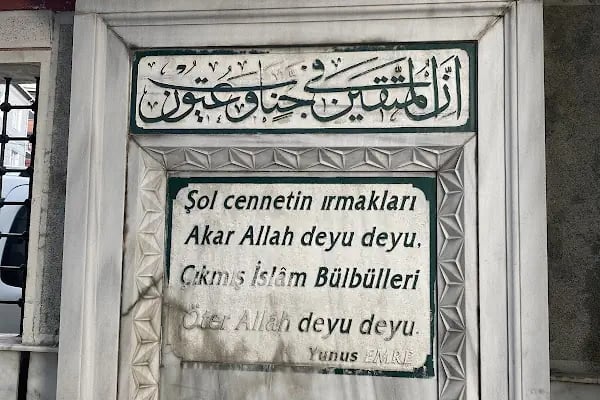 إن المتقين في جنات وعيون
Şol cennetin ırmakları
Akar Allah deyu deyu,
Çıkmış İslâm Bülbülleri
Öter Allah deyu deyu.
Yunus EMRE